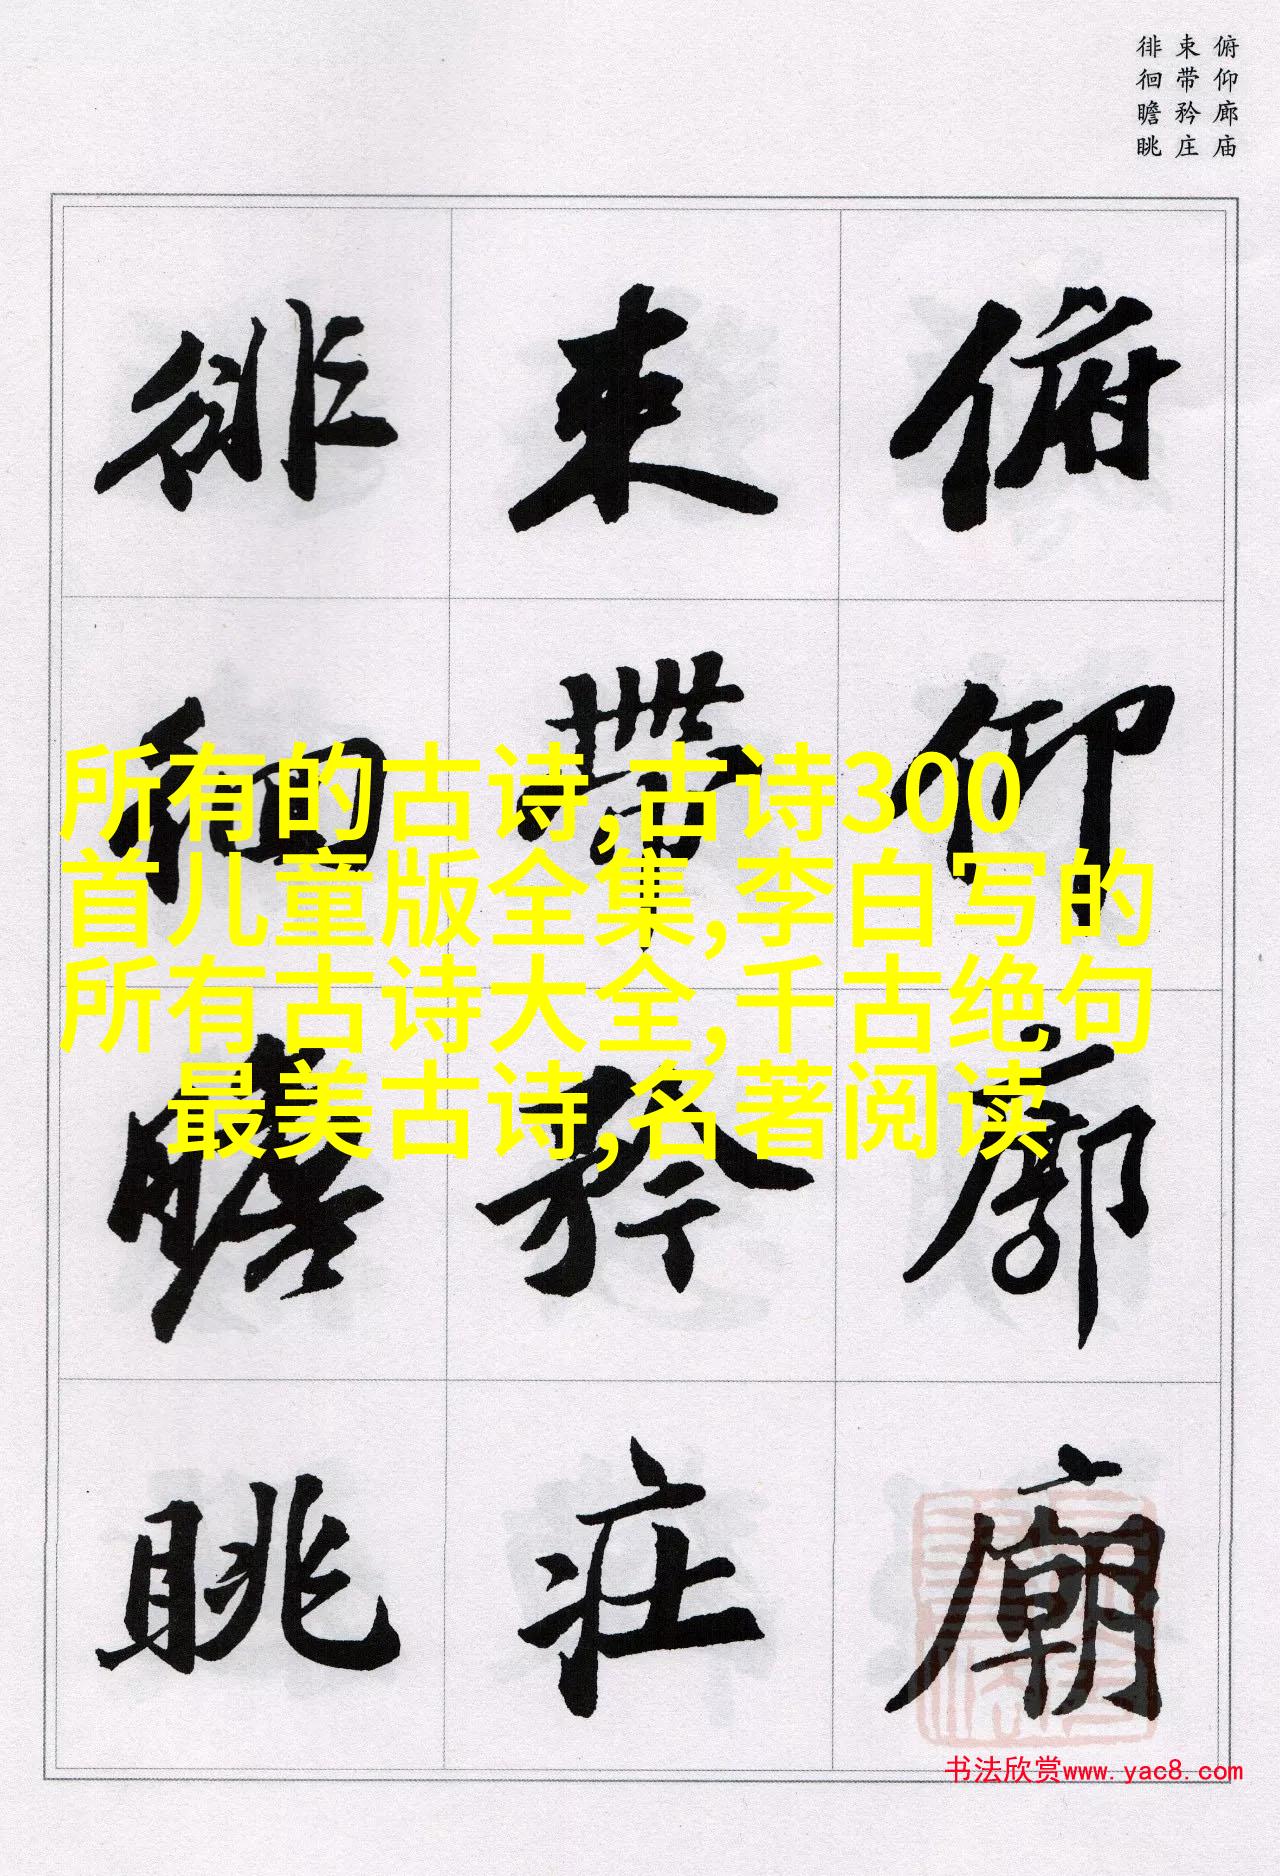 俯仰廊庙
束带矜庄
徘徊瞻眺
俯仰廊廟
束帶矜莊
徘徊瞻眺
所有的古诗,古诗300
首儿童版全集,李白写的
所有古诗大全,千古绝句
最美古诗,名著阅读
书法欣赏www.yac8.com